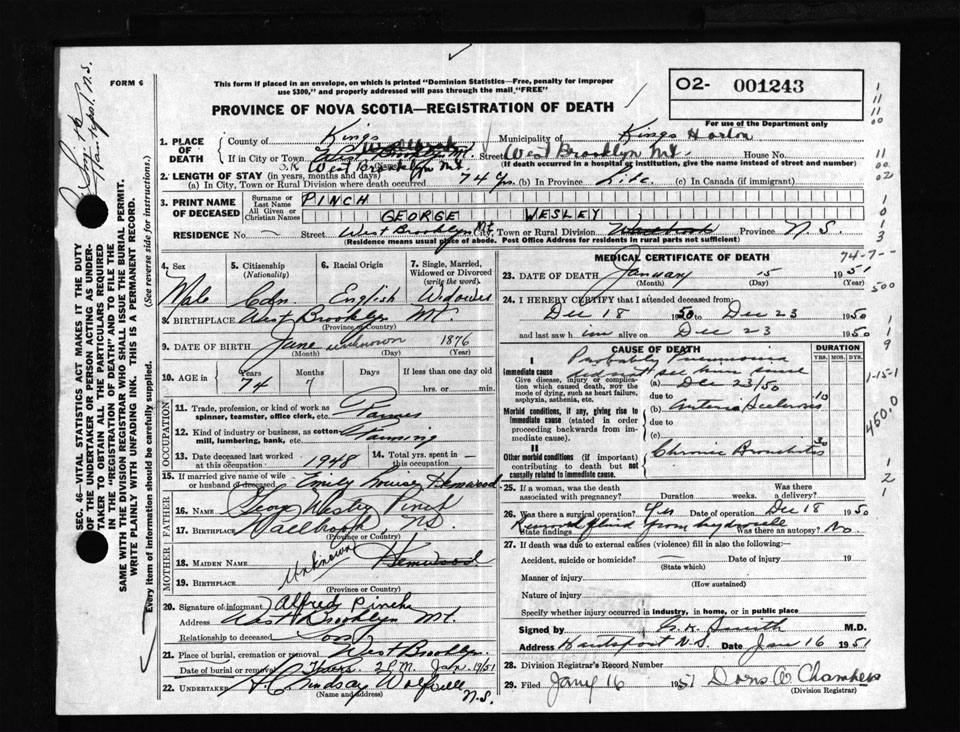 FORM 6
This form if placed in an envelope, on which is printed "Dominion Statistics—Free, penalty for improper
use $300," and properly addressed will pass through the mail "FREE"
O2- 001243
PROVINCE OF NOVA SCOTIA—REGISTRATION OF DEATH
For use of the Department only
1. PLACE OF DEATH
County of Kings Municipality of Kings Horton
If in City or Town Street West Brooklyn Mt. House No.
(If death occurred in a hospital or institution, give the name instead of street and number)
West Brooklyn Mt.
2. LENGTH OF STAY (in years, months and days)
(a) In City, Town or Rural Division where death occurred 74 yrs (b) In Province Life (c) In Canada (if immigrant)
3. PRINT NAME OF DECEASED
Surname or Last Name PINCH
All Given or Christian Names GEORGE WESLEY
RESIDENCE No. — Street West Brooklyn Mt. City, Town or Rural Division Province N.S.
(Residence means usual place of abode. Post Office Address for residents in rural parts not sufficient)
4. Sex Male
5. Citizenship (Nationality) Cdn.
6. Racial Origin English
7. Single, Married, Widowed or Divorced (write the word) Widower
8. BIRTHPLACE West Brooklyn Mt.
(Province or Country)
9. DATE OF BIRTH June unknown 1876
(Month) (Day) (Year)
10. AGE in Years 74 Months 7 Days If less than one day old
hrs. or min.
OCCUPATION
11. Trade, profession, or kind of work as spinner, teamster, office clerk, etc. Farmer
12. Kind of industry or business, as cotton mill, lumbering, bank, etc. Farming
13. Date deceased last worked at this occupation 1948 14. Total yrs. spent in this occupation —
15. If married give name of wife or husband of deceased Emily Louise Hemwood
FATHER
16. NAME George Wesley Pinch
17. BIRTHPLACE Wallbrook, N.S.
(Province or Country)
MOTHER
18. MAIDEN NAME Unknown
19. BIRTHPLACE
(Province or Country)
20. Signature of informant Alfred Pinch
Address West Brooklyn Mt.
Relationship to deceased Son
21. Place of burial, cremation or removal West Brooklyn.
Date of burial or removal 2 P.M. Jan. 19/51
22. UNDERTAKER H. C. Lindsay Wolfville N.S.
(Name and address)
MEDICAL CERTIFICATE OF DEATH
23. DATE OF DEATH January 15 1951
(Month) (Day) (Year)
24. I HEREBY CERTIFY that I attended deceased from:
Dec 18 1950 to Dec 23 1950
and last saw him alive on Dec 23 1950
CAUSE OF DEATH
DURATION
YRS. MOS. DYS.
I
Immediate cause
Give disease, injury or complication which caused death, NOT the mode of dying, such as heart failure, asphyxia, asthenia, etc.
Probably pneumonia
did not see him since
(a) Dec 23/50
due to
Morbid conditions, if any, giving rise to immediate cause (stated in order proceeding backwards from immediate cause).
(b) Arterio Sclerosis 10
due to
(c)
II
Other morbid conditions (if important) contributing to death but not causally related to immediate cause.
Chronic Bronchitis
25. If a woman, was the death associated with pregnancy? Duration weeks. Was there a delivery?
26. Was there a surgical operation? Yes Date of operation Dec 18 1950
State findings Removed fluid from hydrocele Was there an autopsy? No.
27. If death was due to external causes (violence) fill in also the following:—
Accident, suicide or homicide? Date of injury 19
(State which)
Manner of injury
(How sustained)
Nature of injury
Specify whether injury occurred in industry, in home, or in public place
Signed by G.K. Smith M.D.
Address Hantsport N.S. Date Jan 16 1951
28. Division Registrar's Record Number
29. Filed Jany 16 1951 Doris A Chambers
(Division Registrar)
SEC. 46—VITAL STATISTICS ACT MAKES IT THE DUTY
OF THE UNDERTAKER OR PERSON ACTING AS UNDERTAKER TO OBTAIN ALL THE PARTICULARS REQUIRED
IN THE "REGISTRATION OF DEATH" AND TO FILE THE
SAME WITH THE DIVISION REGISTRAR WHO SHALL ISSUE THE BURIAL PERMIT.
WRITE PLAINLY WITH UNFADING INK. THIS IS A PERMANENT RECORD.
Every item of information should be carefully supplied. (See reverse side for instructions.)
Hantsport, N.S.
74-7--
500
1-15-1
450.0